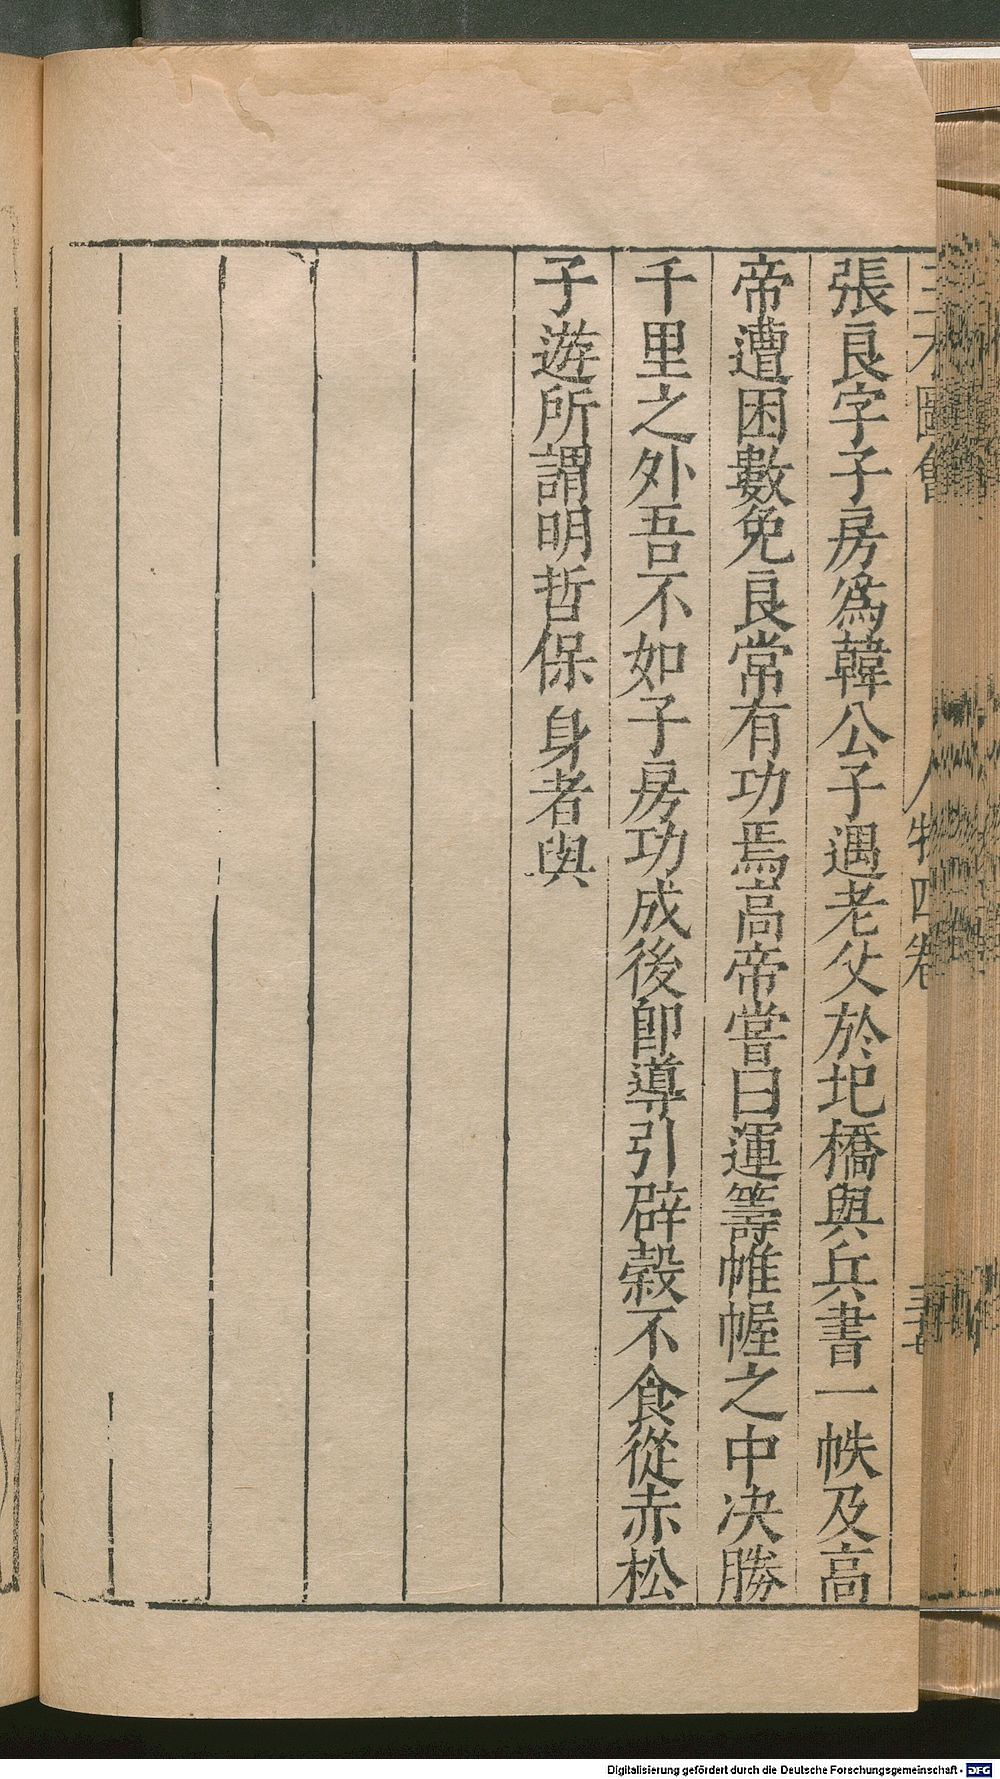 張良字子房爲韓公子遇老父於圯橋與兵書一帙及高
帝遭困數免良常有功焉高帝嘗曰運籌帷幄之中决勝
千里之外吾不如子房功成後卽導引辟穀不食從赤松
子遊所謂明哲保身者與
Digitalisierung gefördert durch die Deutsche Forschungsgemeinschaft - DFG